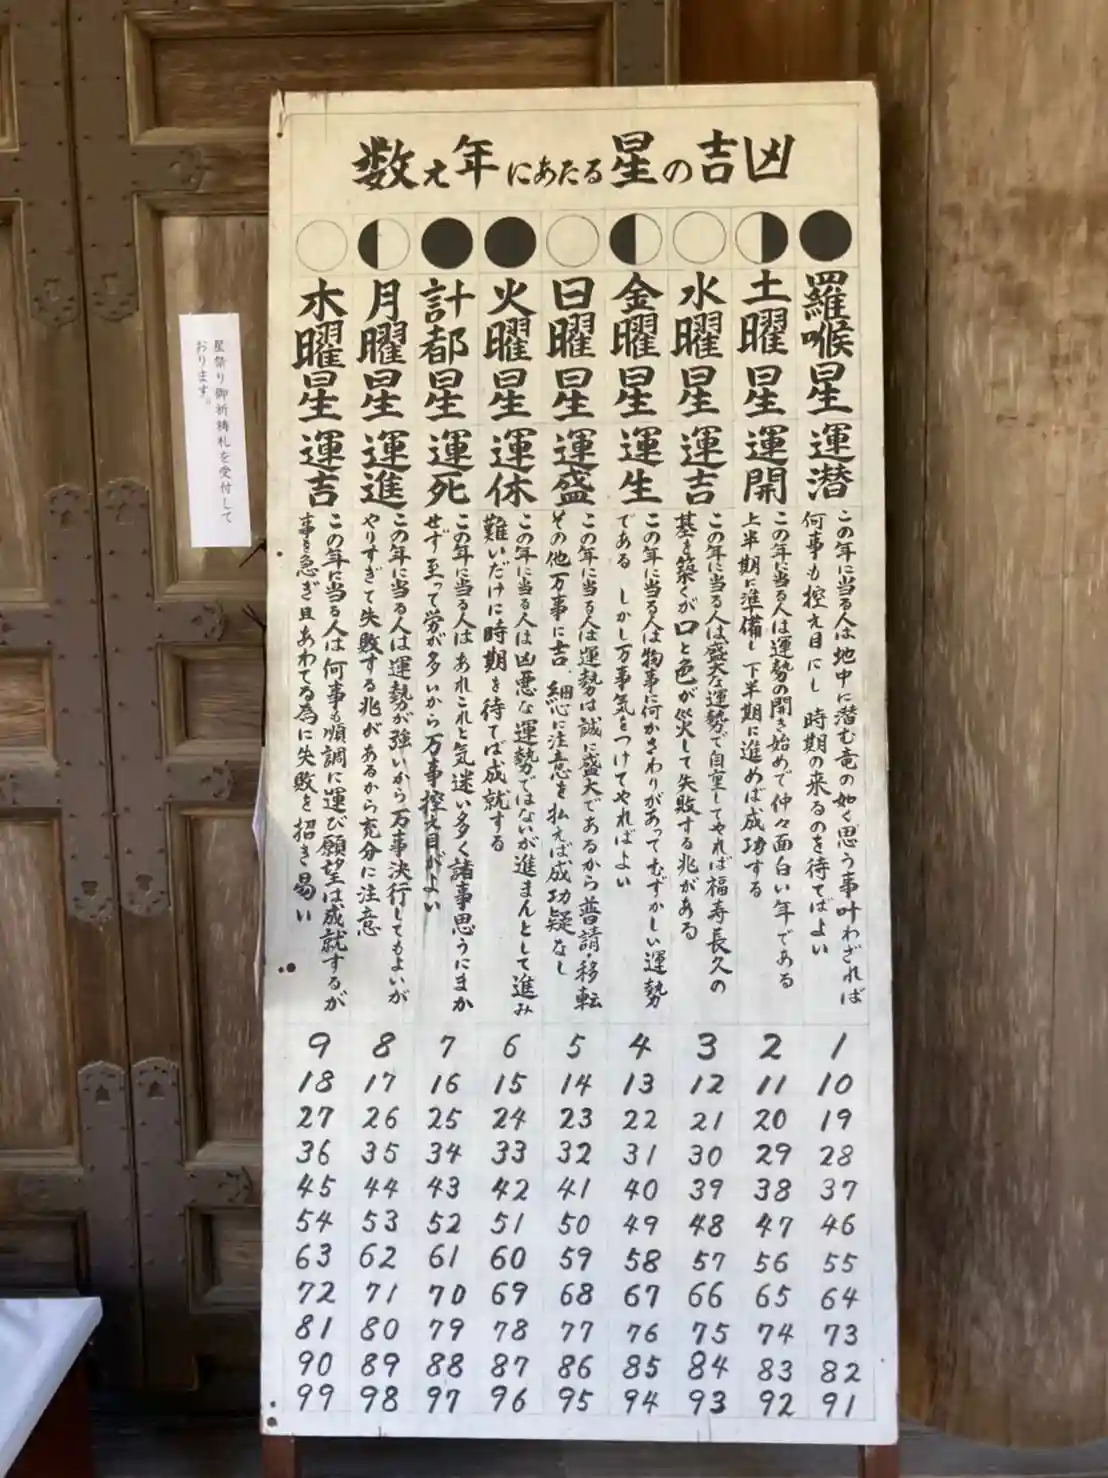 数え年にあたる星の吉凶
羅喉星
運潜
この年に当る人は地中に潜む竜の如く思う事叶わざれば
何事も控え目にし 時期の来るのを待てばよい
1
10
19
28
37
46
55
64
73
82
91
土曜星
運開
この年に当る人は運勢の開き始めで仲々面白い年である
上半期に準備し 下半期に進めば成功する
2
11
20
29
38
47
56
65
74
83
92
水曜星
運吉
この年に当る人は盛大な運勢で自重してやれば福寿長久の
基を築くが口と色が災して失敗する兆がある
3
12
21
30
39
48
57
66
75
84
93
金曜星
運生
この年に当る人は物事に何かさわりがあってむずかしい運勢
である しかし万事気をつけてやればよい
4
13
22
31
40
49
58
67
76
85
94
日曜星
運盛
この年に当る人は運勢は誠に盛大であるから普請・移転
その他万事に吉、細心に注意を払えば成功疑なし
5
14
23
32
41
50
59
68
77
86
95
火曜星
運休
この年に当る人は凶悪な運勢ではないが進まんとして進み
難いだけに時期を待てば成就する
6
15
24
33
42
51
60
69
78
87
96
計都星
運死
この年に当る人はあれこれと気迷い多く諸事思うにまか
せず至って労が多いから万事控え目がよい
7
16
25
34
43
52
61
70
79
88
97
月曜星
運進
この年に当る人は運勢が強いから万事決行してもよいが
やりすぎて失敗する兆があるから充分に注意
8
17
26
35
44
53
62
71
80
89
98
木曜星
運吉
この年に当る人は何事も順調に運び願望は成就するが
事を急ぎ且あわてる為に失敗を招き易い
9
18
27
36
45
54
63
72
81
90
99
星祭り御祈祷札を受付して
おります。